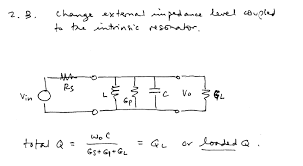 2. B. Change external impedance level coupled
to the intrinsic resonator.
Rs
Vin
L
Gp
C
Vo
GL
total Q = ω₀C / Gs+Gp+GL = QL or loaded Q.